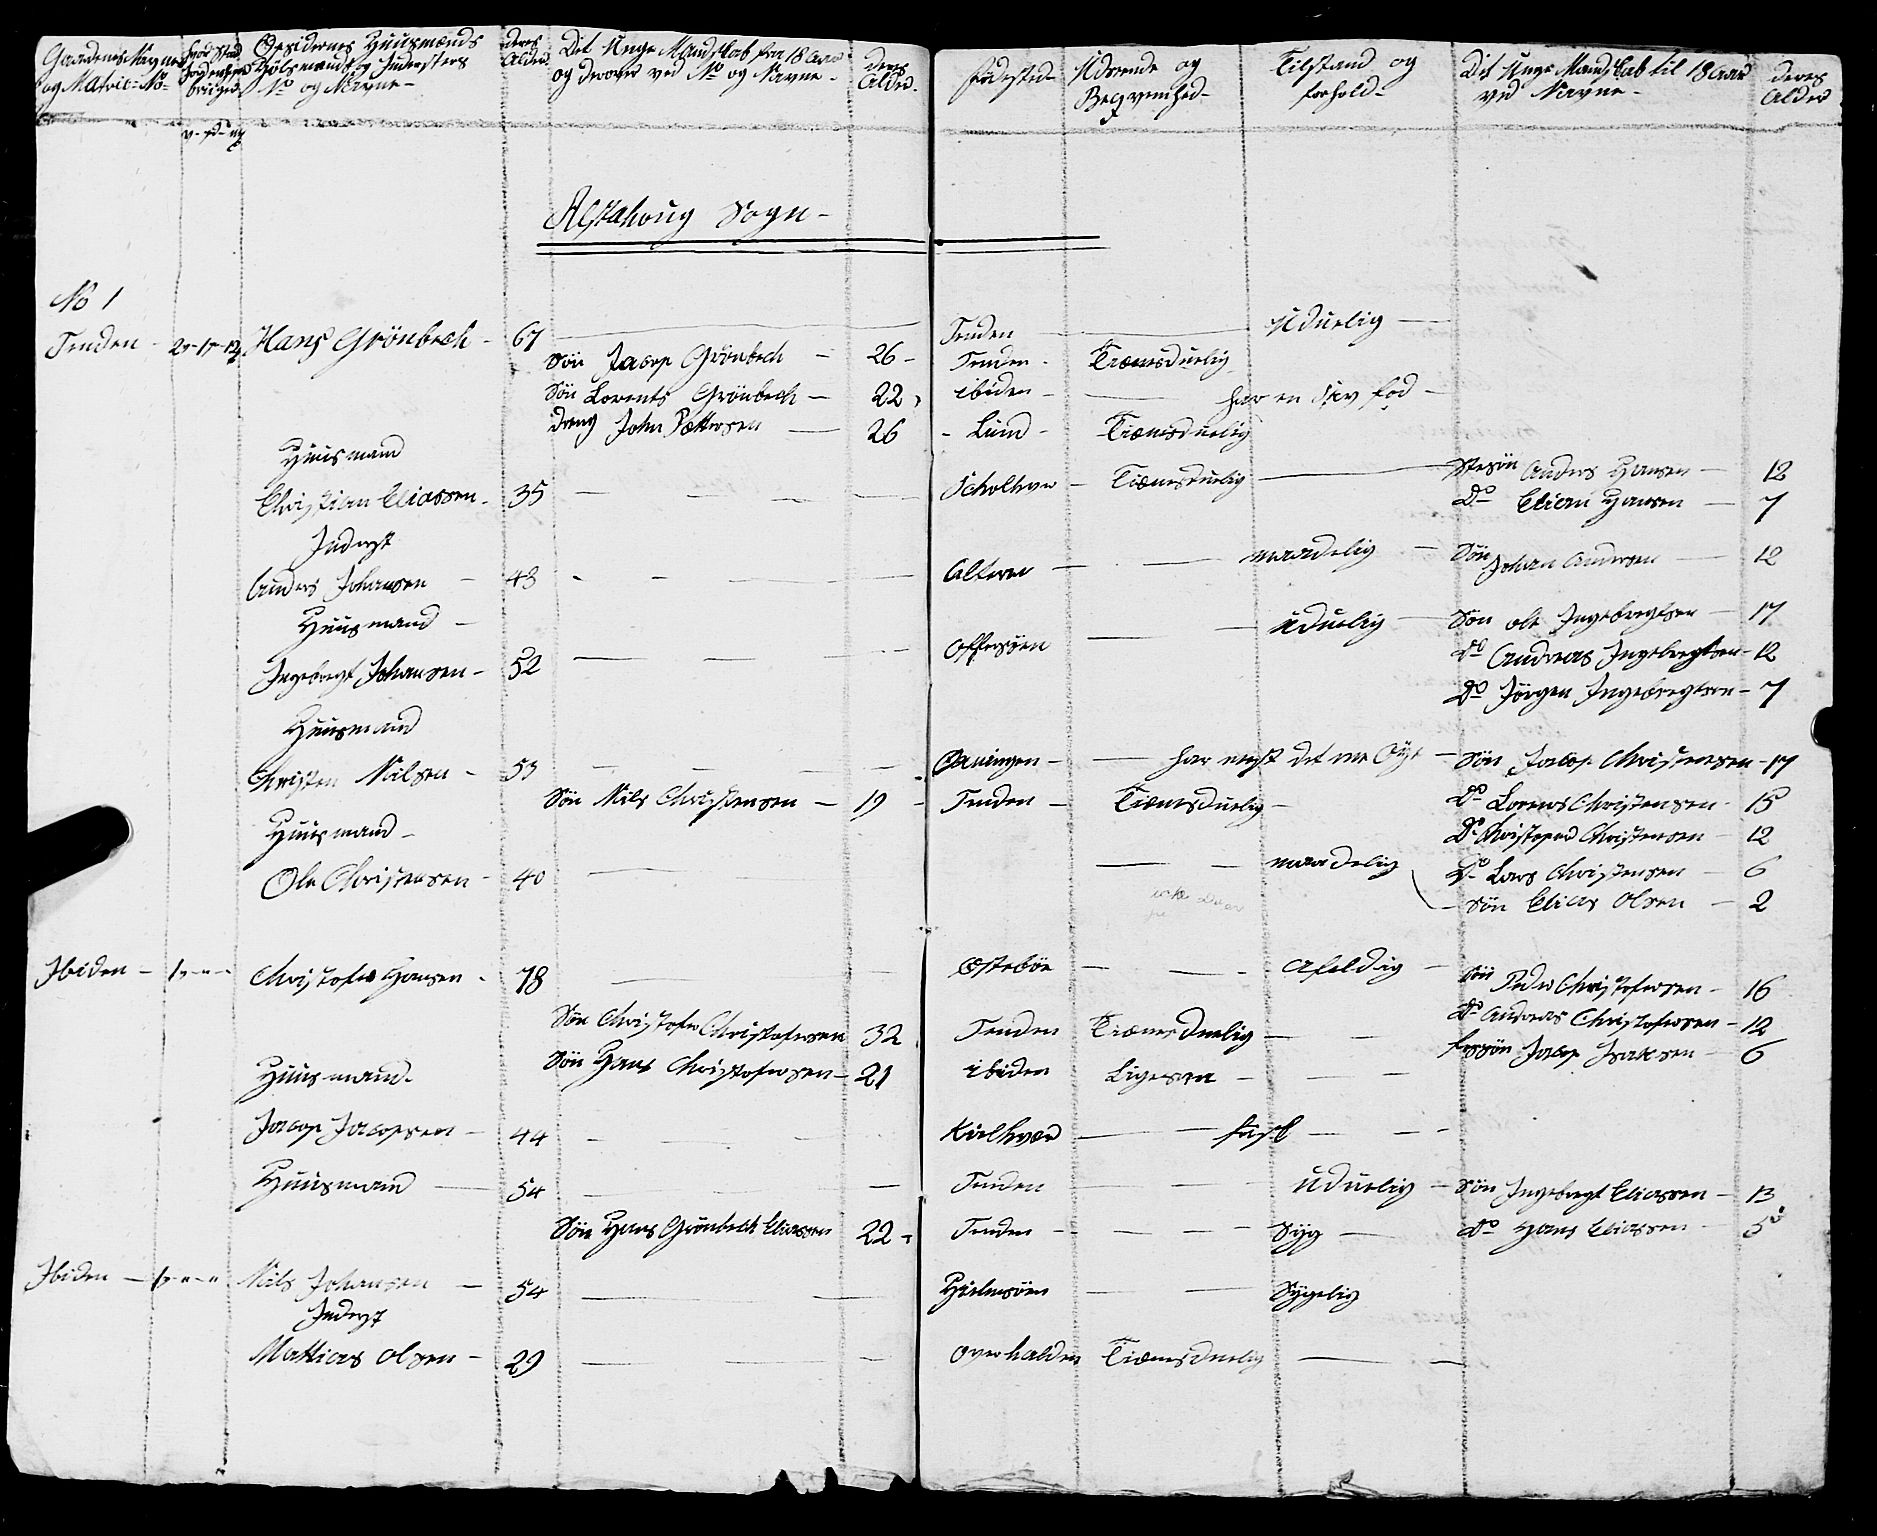 Gaardenes Navne og Matric: No
Opsidernes Huusmænds
og Indersters
No og Navne
deres Alder
Dit Unge Mandskab fra 18 Aar
og derover ved No og Navne
deres Alder
Fødested
Udseende og
Beqvemhed
Tilstand og
forhold
Dit Unge Mandskab til 18 Aar
ved Navne
deres Alder
v - pd - mk
Alstahoug Sogn
No 1
Tenden Hans Grönbech 67 Tenden Uduelig
Søn Jacop Grönbech 26 Tenden Tienesduelig
Søn Lorents Grönbech 22 ibiden har en stiv fod
dreng John Pettersen 26 Lund Tienesduelig
Huusmand
Christian Eliassen 35 Tienesduelig Stesøn Anders Hansen 12
Do Elian Hansen 7
Inderst
Anders Johansen 48 Alteren maadelig Søn Johan Andersen 12
Huusmand
Ingebregt Johansen 52 Offersøen uduelig Søn ole Ingebregtsen 17
Do Andreas Ingebregtsen 12
Do Jörgen Ingebregtsen 7
Huusmand
Christen Nilsen 53 har mist det ene Öye Søn Jacop Christensen 17
Søn Nils Christensen 19 Tenden Tienesduelig Do Lorens Christensen 15
Huusmand Do Christoper Christensen 12
Ole Christensen 40 maadelig Do Lars Christensen 6
Søn Elias Olsen 2
Ibiden 1 - " - " Christofer Hansen 78 Østebøe Afeldig Søn Peder Christofersen 16
Søn Christofer Christofersen 32 Tenden Tienesduelig Do Andreas Christofersen 12
Søn Hans Christofersen 21 ibiden Ligesaa Jacop Isaksen 6
Huusmand
Jacop Jacopsen 44 fast
Huusmand 54 Tenden uduelig Søn Ingebregt Eliassen 13
Søn Hans Grönbech Eliassen 22 Tenden Syg Do Hans Eliassen 5
Ibiden 1 - " - " Nils Johansen 54 Hielmsøen Sygelig
Inderst
Mattias Olsen 29 Overhalden Tienesduelig